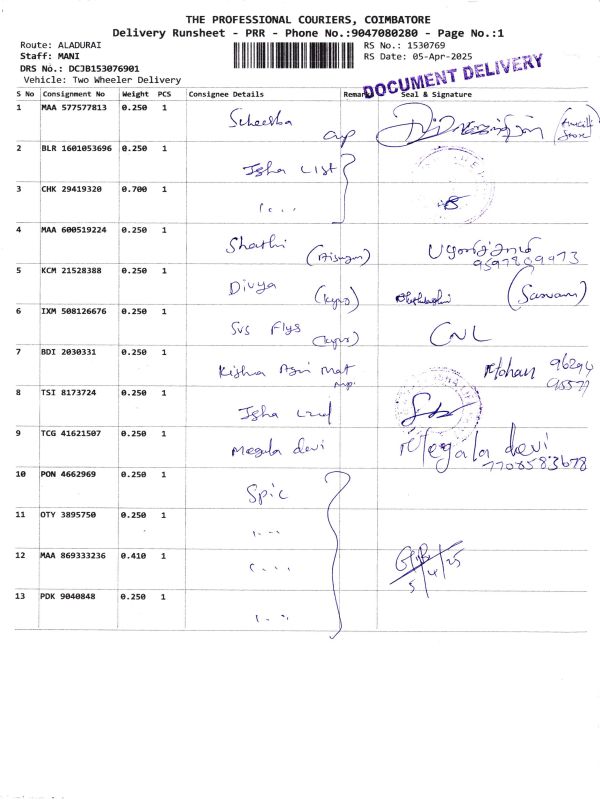 THE PROFESSIONAL COURIERS, COIMBATORE
Delivery Runsheet - PRR - Phone No.:9047080280 - Page No.:1
Route: ALADURAI
Staff: MANI
DRS No.: DCJB153076901
Vehicle: Two Wheeler Delivery
RS No.: 1530769
RS Date: 05-Apr-2025
DOCUMENT DELIVERY
S No Consignment No Weight PCS Consignee Details Remark Seal & Signature
1 MAA 577577813 0.250 1
2 BLR 1601053696 0.250 1 Isha
3 CHK 29419320 0.700 1
4 MAA 600519224 0.250 1 Shathi
9597809473
5 KCM 21528388 0.250 1 Divya
6 IXM 508126676 0.250 1 SVS Flys CNL
7 BDI 2030331 0.250 1 Mohan 96294
95577
8 TSI 8173724 0.250 1 Isha
9 TCG 41621507 0.250 1 Megala devi Megala devi
7708583678
10 PON 4662969 0.250 1 Spic
11 OTY 3895750 0.250 1
12 MAA 869333236 0.410 1
5/4/25
13 PDK 9040848 0.250 1